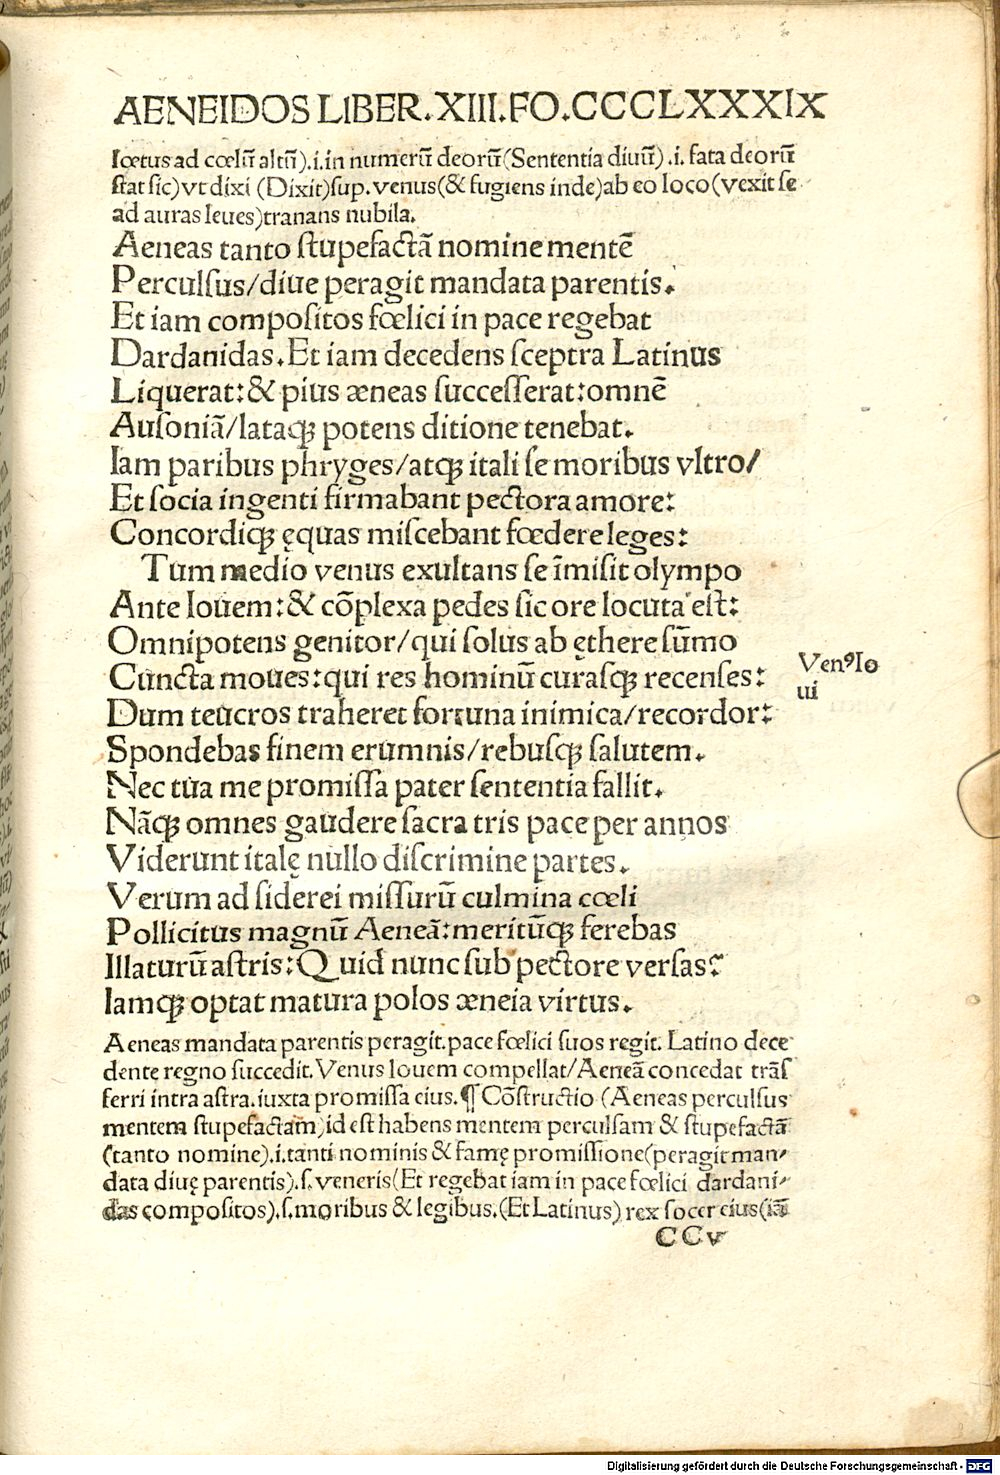 AENEIDOS LIBER. XIII. FO. CCCCLXXXIX
lœtus ad cœlū altū).i. in numerū deorū(Sententia diuū).i. fata deorū
stat sic)vt dixi (Dixit)sup. venus(& fugiens inde)ab eo loco(vexit se
ad auras leues)tranans nubila.
Aeneas tanto stupefactā nomine mentē
Perculsus/diue peragit mandata parentis.
Et iam compositos fœlici in pace regebat
Dardanidas. Et iam decedens sceptra Latinus
Liquerat: & pius æneas successerat: omnē
Ausoniā/lataqȝ potens ditione tenebat.
Iam paribus phryges/atqȝ itali se moribus vltro/
Et socia ingenti firmabant pectora amore:
Concordiqȝ ęquas miscebant fœdere leges:
Tum medio venus exultans se īmisit olympo
Ante Iouem: & cōplexa pedes sic ore locuta est:
Omnipotens genitor/qui solus ab ęthere sūmo
Cuncta moues: qui res hominū curasqȝ recenses:
Dum teucros traheret fortuna inimica/recordor:
Spondebas finem erumnis/rebusqȝ salutem.
Nec tua me promissa pater sententia fallit.
Nāqȝ omnes gaudere sacra tris pace per annos
Viderunt italę nullo discrimine partes.
Verum ad siderei missurū culmina cœli
Pollicitus magnū Aeneā: meritūqȝ ferebas
Illaturū astris: Quid nunc sub pectore versas?
Iamqȝ optat matura polos æneia virtus.
Venꝰ Io
ui
Aeneas mandata parentis peragit. pace fœlici suos regit. Latino dece
dente regno succedit. Venus Iouem compellat/Aeneā concedat trās
ferri intra astra. iuxta promissa eius. ¶ Cōstructio (Aeneas perculsus
mentem stupefactam)id est habens mentem perculsam & stupefactā
(tanto nomine).i. tanti nominis & famę promissione(peragit man-
data diuę parentis).s. veneris(Et regebat iam in pace fœlici dardani-
das compositos).s. moribus & legibus. (Et Latinus) rex socer eius(iā
CC v
Digitalisierung gefördert durch die Deutsche Forschungsgemeinschaft - DFG